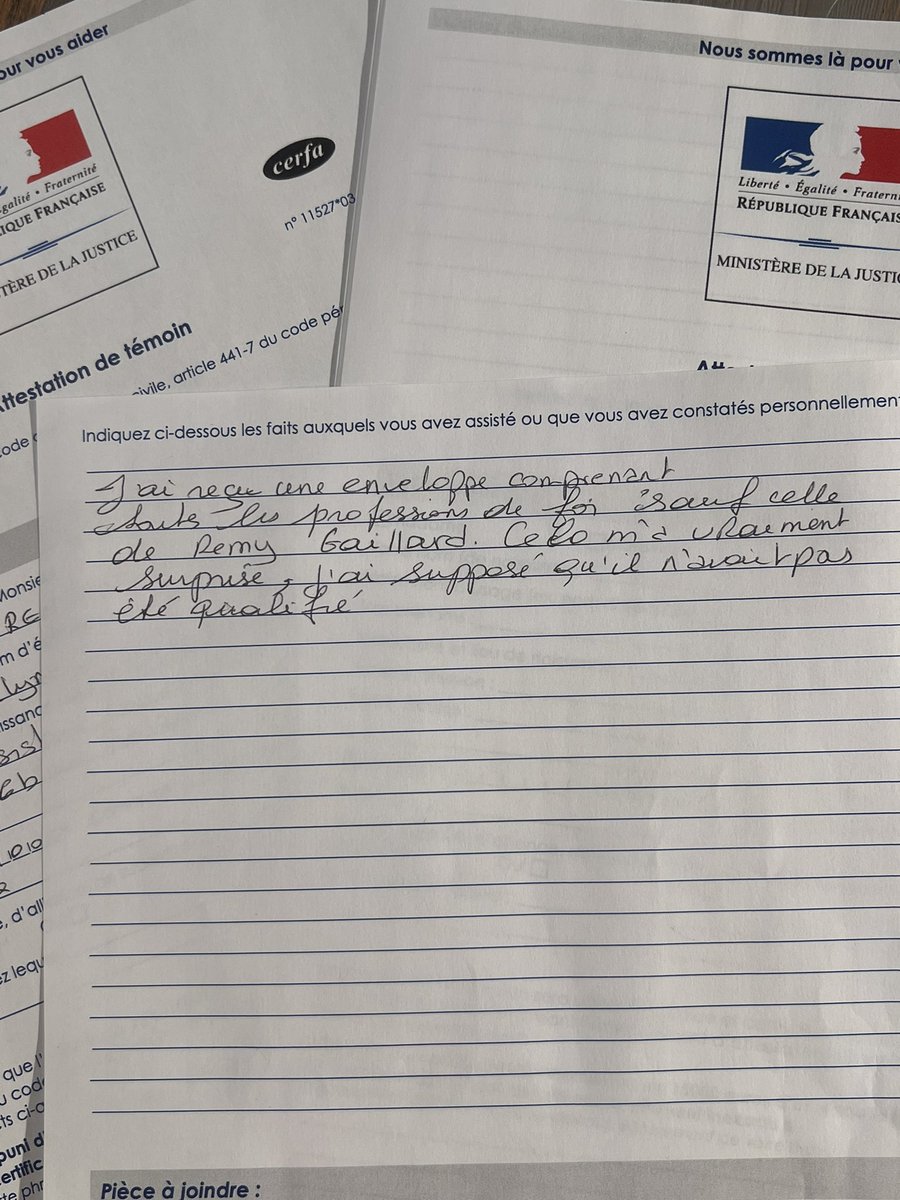 our vous aider
galité • Fraternité
IQUE FRANÇAISE
TÈRE DE LA JUSTICE
cerfa
n° 11527*03
Attestation de témoin
civile, article 441-7 du code pén
Nous sommes là pour v
Liberté • Égalité • Fraterni
RÉPUBLIQUE FRANÇAIS
MINISTÈRE DE LA JUSTIC
Indiquez ci-dessous les faits auxquels vous avez assisté ou que vous avez constatés personnellement
J'ai reçu une enveloppe comprenant
toute les professions de foi sauf celle
de Remy Gaillard. Cela m'a vraiment
surprise, j'ai supposé qu'il n'avait pas
été qualifié
code
Monsie
RG
m d'é
issanc
1010
, d'all
z lequ
que l'
u code
ts ci-d
puni d
ertific
te phr
Pièce à joindre :